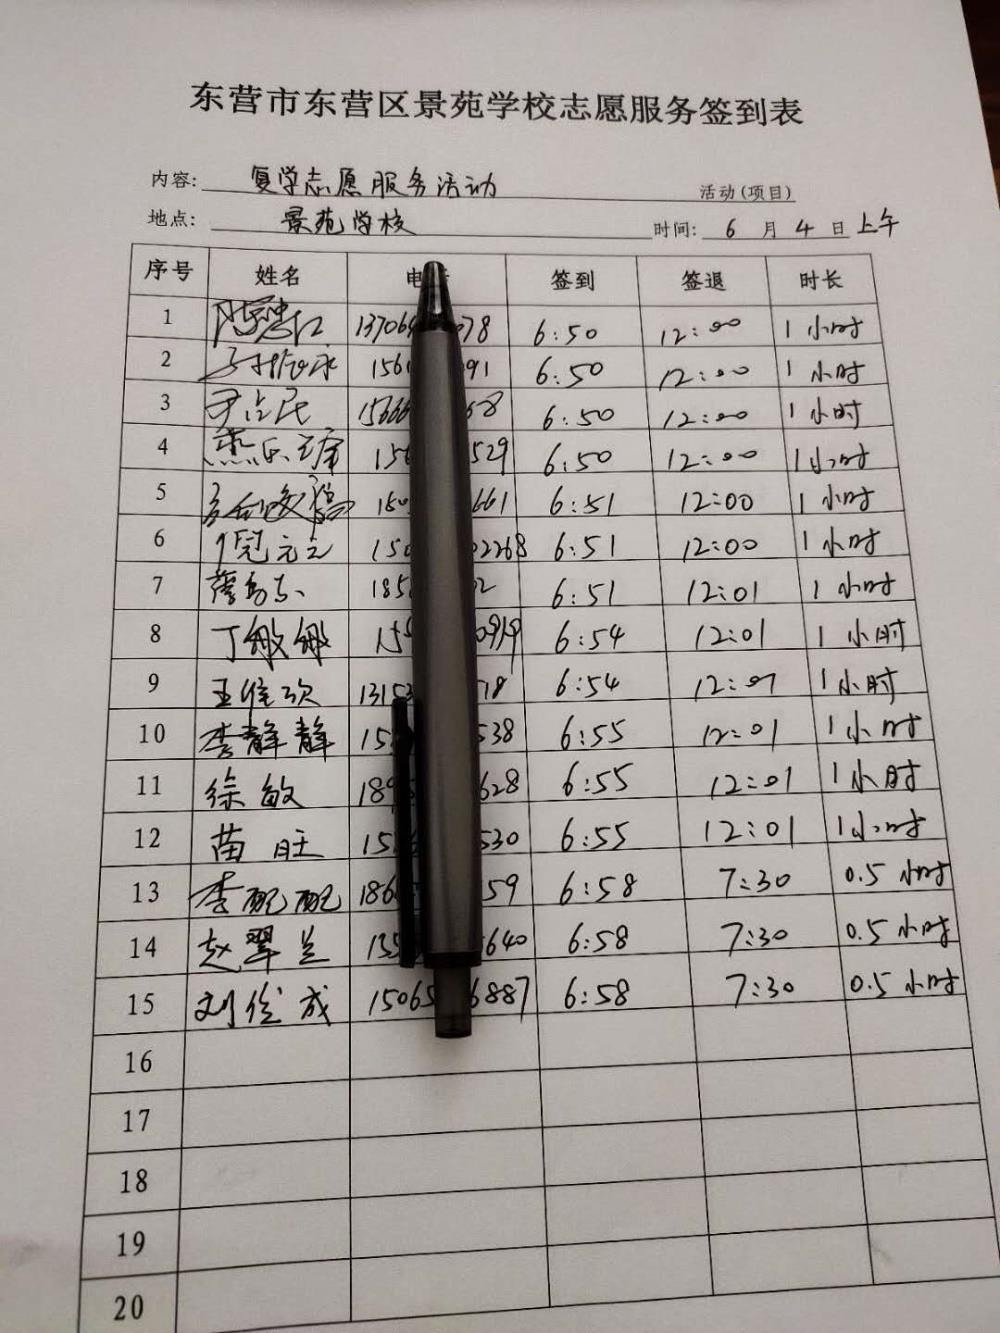 东营市东营区景苑学校志愿服务签到表
内容: 复学志愿服务活动 活动(项目)
地点: 景苑学校 时间: 6 月 4 日 上午
序号 姓名 电 签到 签退 时长
1 13706 078 6:50 12:00 1小时
2 156 091 6:50 12:00 1小时
3 尹占民 15666 68 6:50 12:00 1小时
4 15 529 6:50 12:00 1小时
5 180 661 6:51 12:00 1小时
6 倪元立 150 2268 6:51 12:00 1小时
7 185 2 6:51 12:01 1小时
8 丁敏敏 155 0919 6:54 12:01 1小时
9 13153 78 6:54 12:01 1小时
10 李静静 15 538 6:55 12:01 1小时
11 徐敏 189 628 6:55 12:01 1小时
12 苗旺 15 530 6:55 12:01 1小时
13 李配配 186 59 6:58 7:30 0.5小时
14 赵翠兰 135 640 6:58 7:30 0.5小时
15 15065 6887 6:58 7:30 0.5小时
16
17
18
19
20